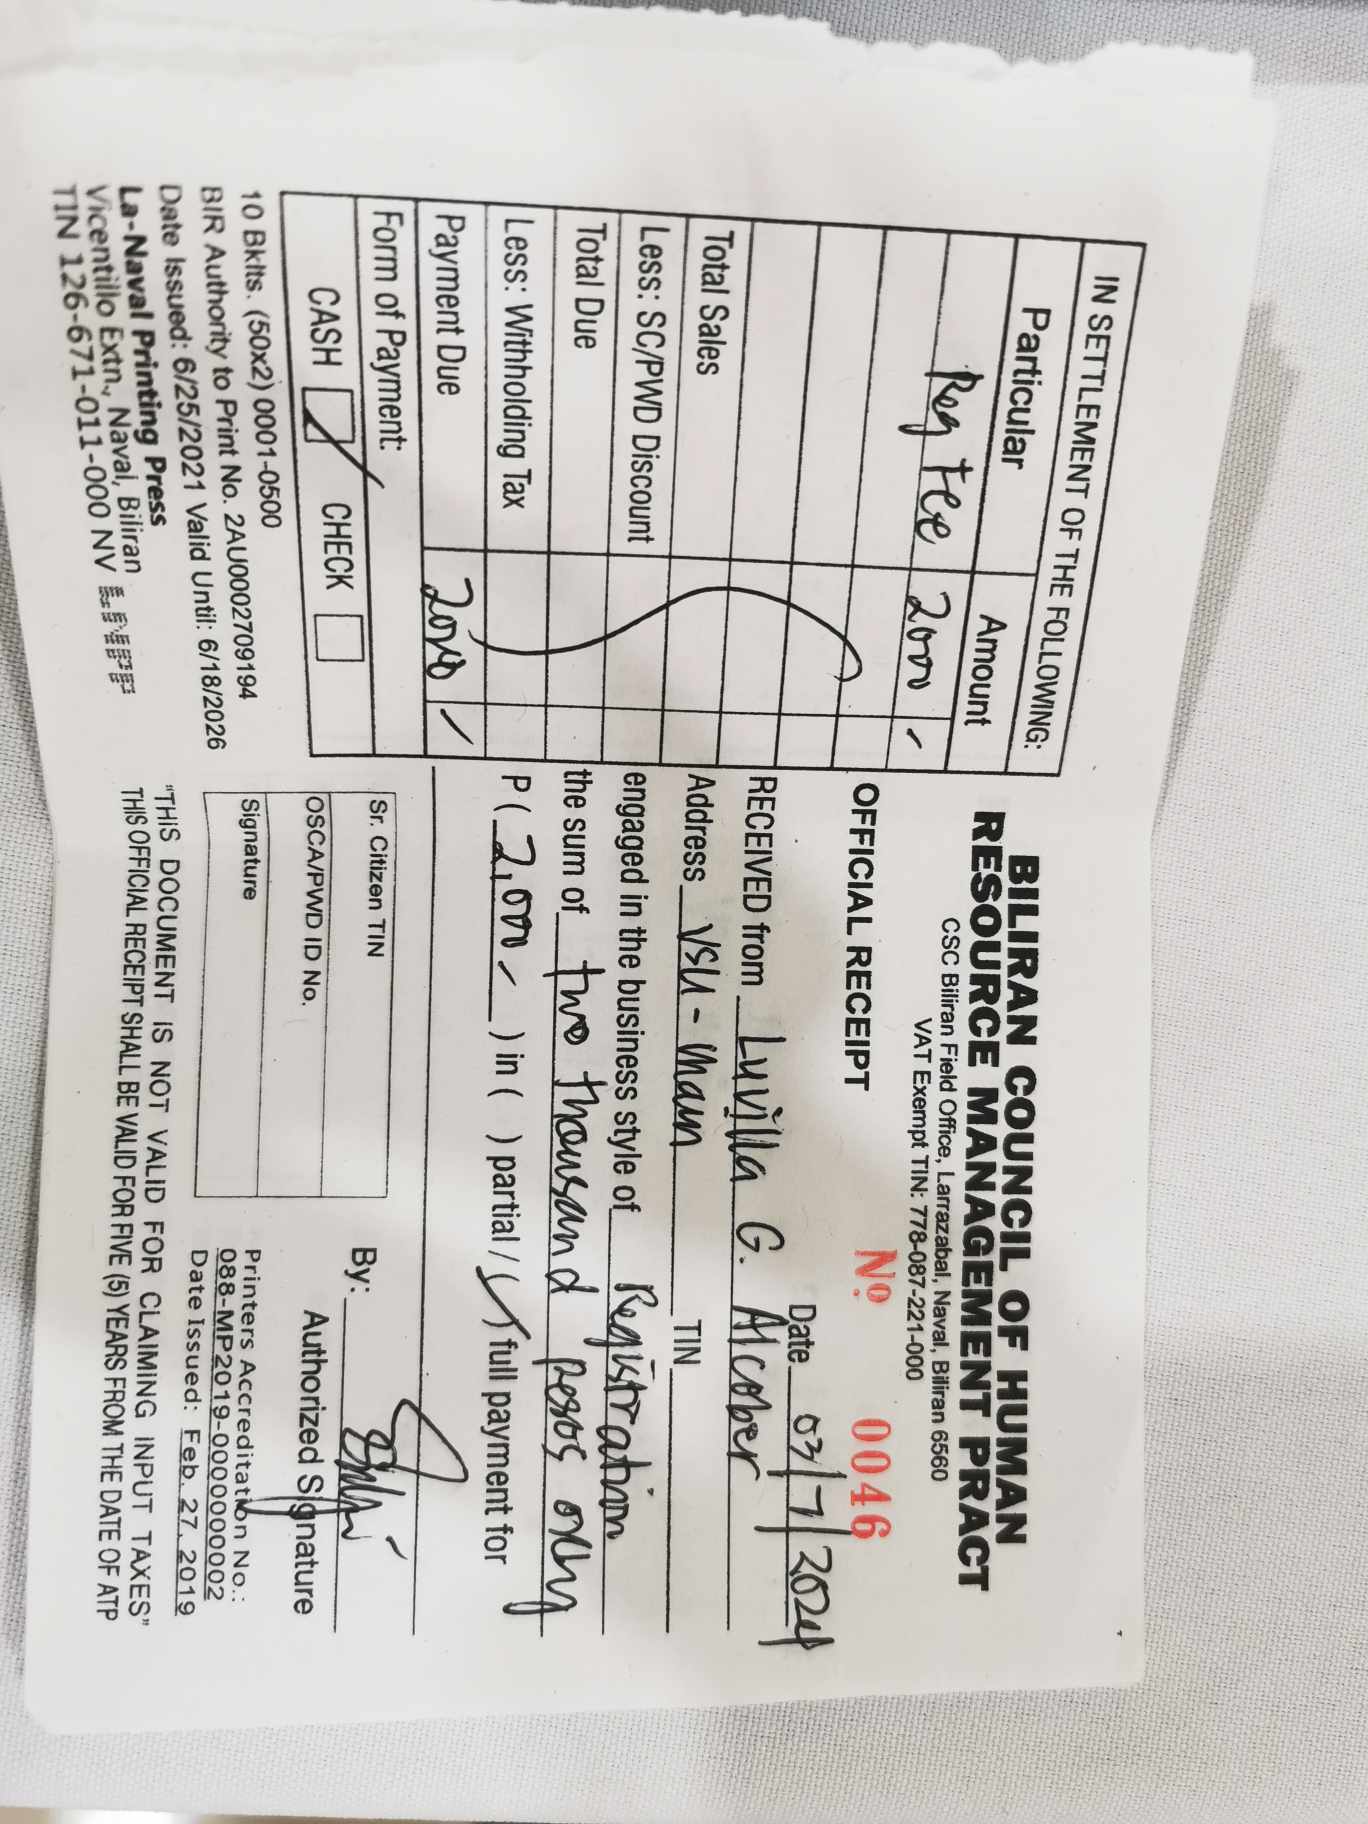 IN SETTLEMENT OF THE FOLLOWING:
Particular Amount
Reg Fee 2000 -
Total Sales
Less: SC/PWD Discount
Total Due
Less: Withholding Tax
Payment Due 2000 -
Form of Payment:
CASH CHECK
10 Bklts. (50x2) 0001-0500
BIR Authority to Print No. 2AU0002709194
Date Issued: 6/25/2021 Valid Until: 6/18/2026
La-Naval Printing Press
Vicentillo Extn., Naval, Biliran
TIN 126-671-011-000 NV LNPP
BILIRAN COUNCIL OF HUMAN
RESOURCE MANAGEMENT PRACT
CSC Biliran Field Office, Larrazabal, Naval, Biliran 6560
VAT Exempt TIN: 778-087-221-000
OFFICIAL RECEIPT No. 0046
Date 03/7/2024
RECEIVED from Luvilla G. Alcober
Address VSU - Main TIN
engaged in the business style of Registration
the sum of two thousand pesos only
P ( 2,000 - ) in ( ) partial / ( ) full payment for
Sr. Citizen TIN
OSCA/PWD ID No.
Signature
By:
Authorized Signature
Printers Accreditation No.:
088-MP2019-0000000002
Date Issued: Feb. 27, 2019
"THIS DOCUMENT IS NOT VALID FOR CLAIMING INPUT TAXES"
THIS OFFICIAL RECEIPT SHALL BE VALID FOR FIVE (5) YEARS FROM THE DATE OF ATP